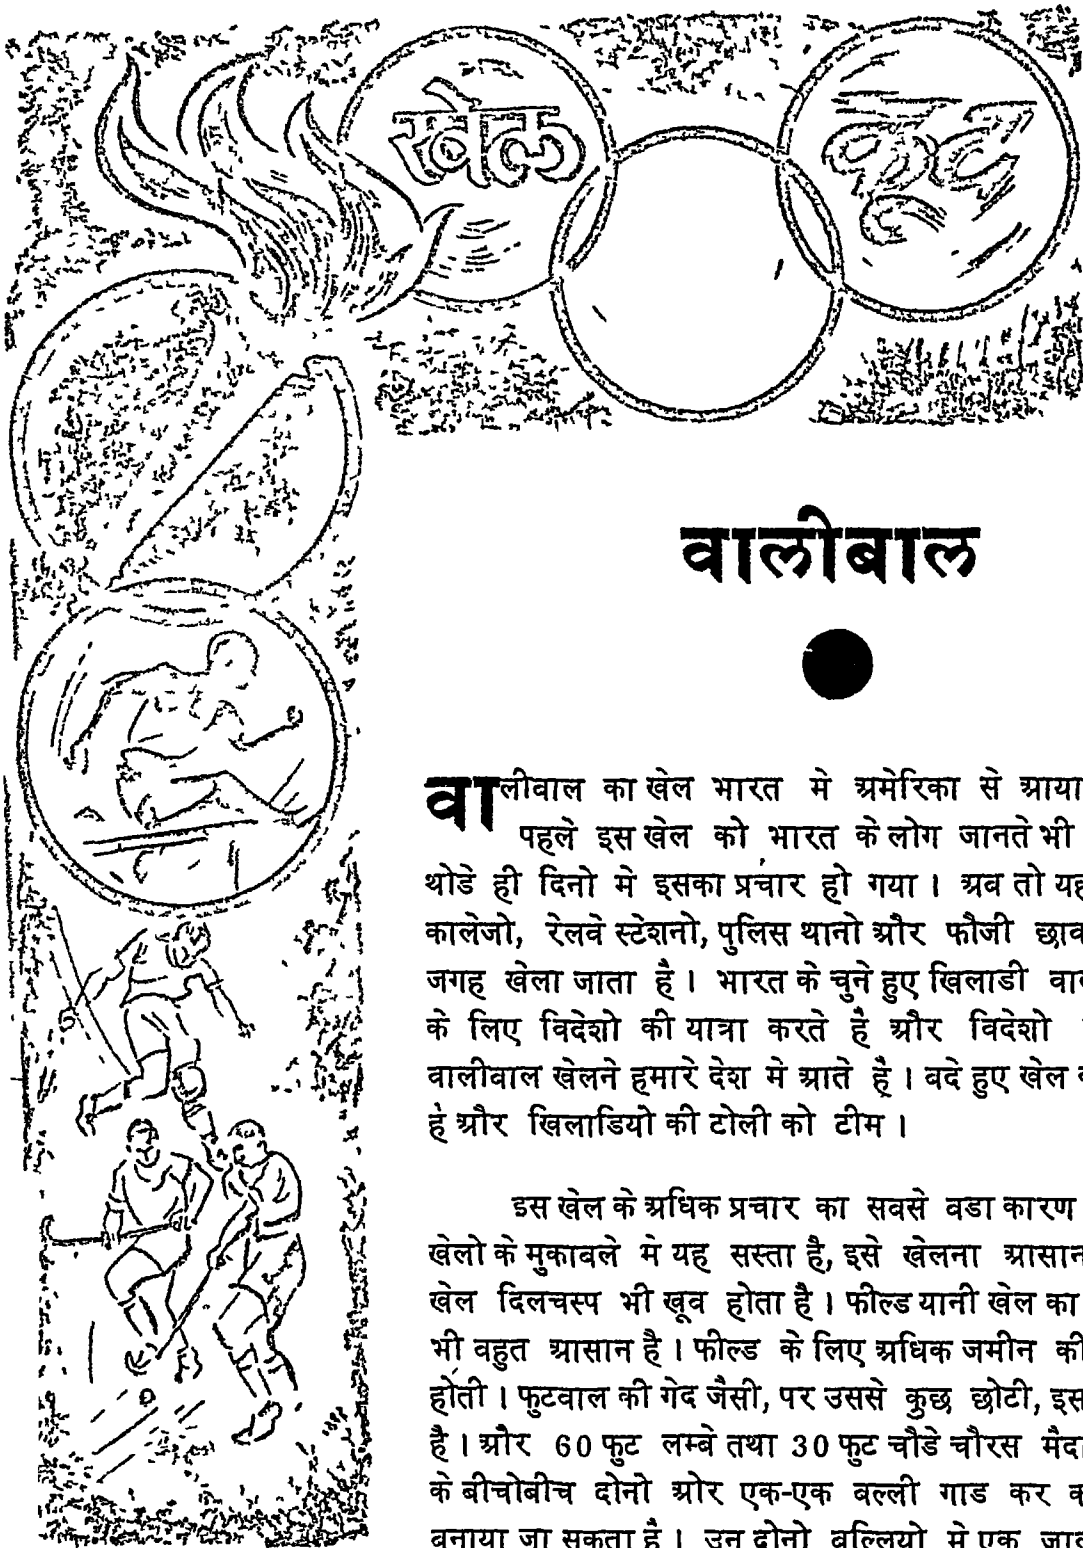 खेल
कूद
वालीबाल
वालीवाल का खेल भारत मे अमेरिका से आया
पहले इस खेल को भारत के लोग जानते भी
थोडे ही दिनो मे इसका प्रचार हो गया । अव तो यह
कालेजो, रेलवे स्टेशनो, पुलिस थानो और फौजी
जगह खेला जाता है । भारत के चुने हुए खिलाडी
के लिए विदेशो की यात्रा करते है और विदेशो
वालीवाल खेलने हमारे देश मे आते है । वदे हुए खेल
है और खिलाडियो की टोली को टीम ।
इस खेल के अधिक प्रचार का सवसे वडा कारण
खेलो के मुकाबले मे यह सस्ता है, इसे खेलना आसान
खेल दिलचस्प भी खूव होता है । फील्ड यानी खेल का
भी वहुत आसान है । फील्ड के लिए अधिक जमीन की
होती । फुटवाल की गेद जैसी, पर उससे कुछ छोटी, इस
है । और 60 फुट लम्बे तथा 30 फुट चौडे चौरस
के बीचोबीच दोनो ओर एक-एक बल्ली गाड कर
वनाया जा सकता है । उन दोनो वल्लियो मे एक